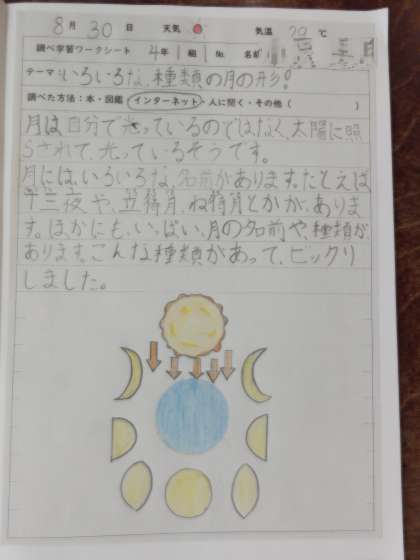 8月30日 天気 気温 ℃
調べ学習ワークシート 4年 1組 No. 名前
テーマ:いろいろな、種類の月の形!
調べた方法:本・図鑑 インターネット・人に聞く・その他( )
月は自分で光っているのではなく、太陽に照
らされて、光っているそうです。
月には、いろいろな、名前があります。たとえば
十三夜や、立待月、ね待月とかが、ありま
す。ほかにも、いっぱい、月の名前や、種類が、
あります。こんな種類があって、ビックリ
しました。